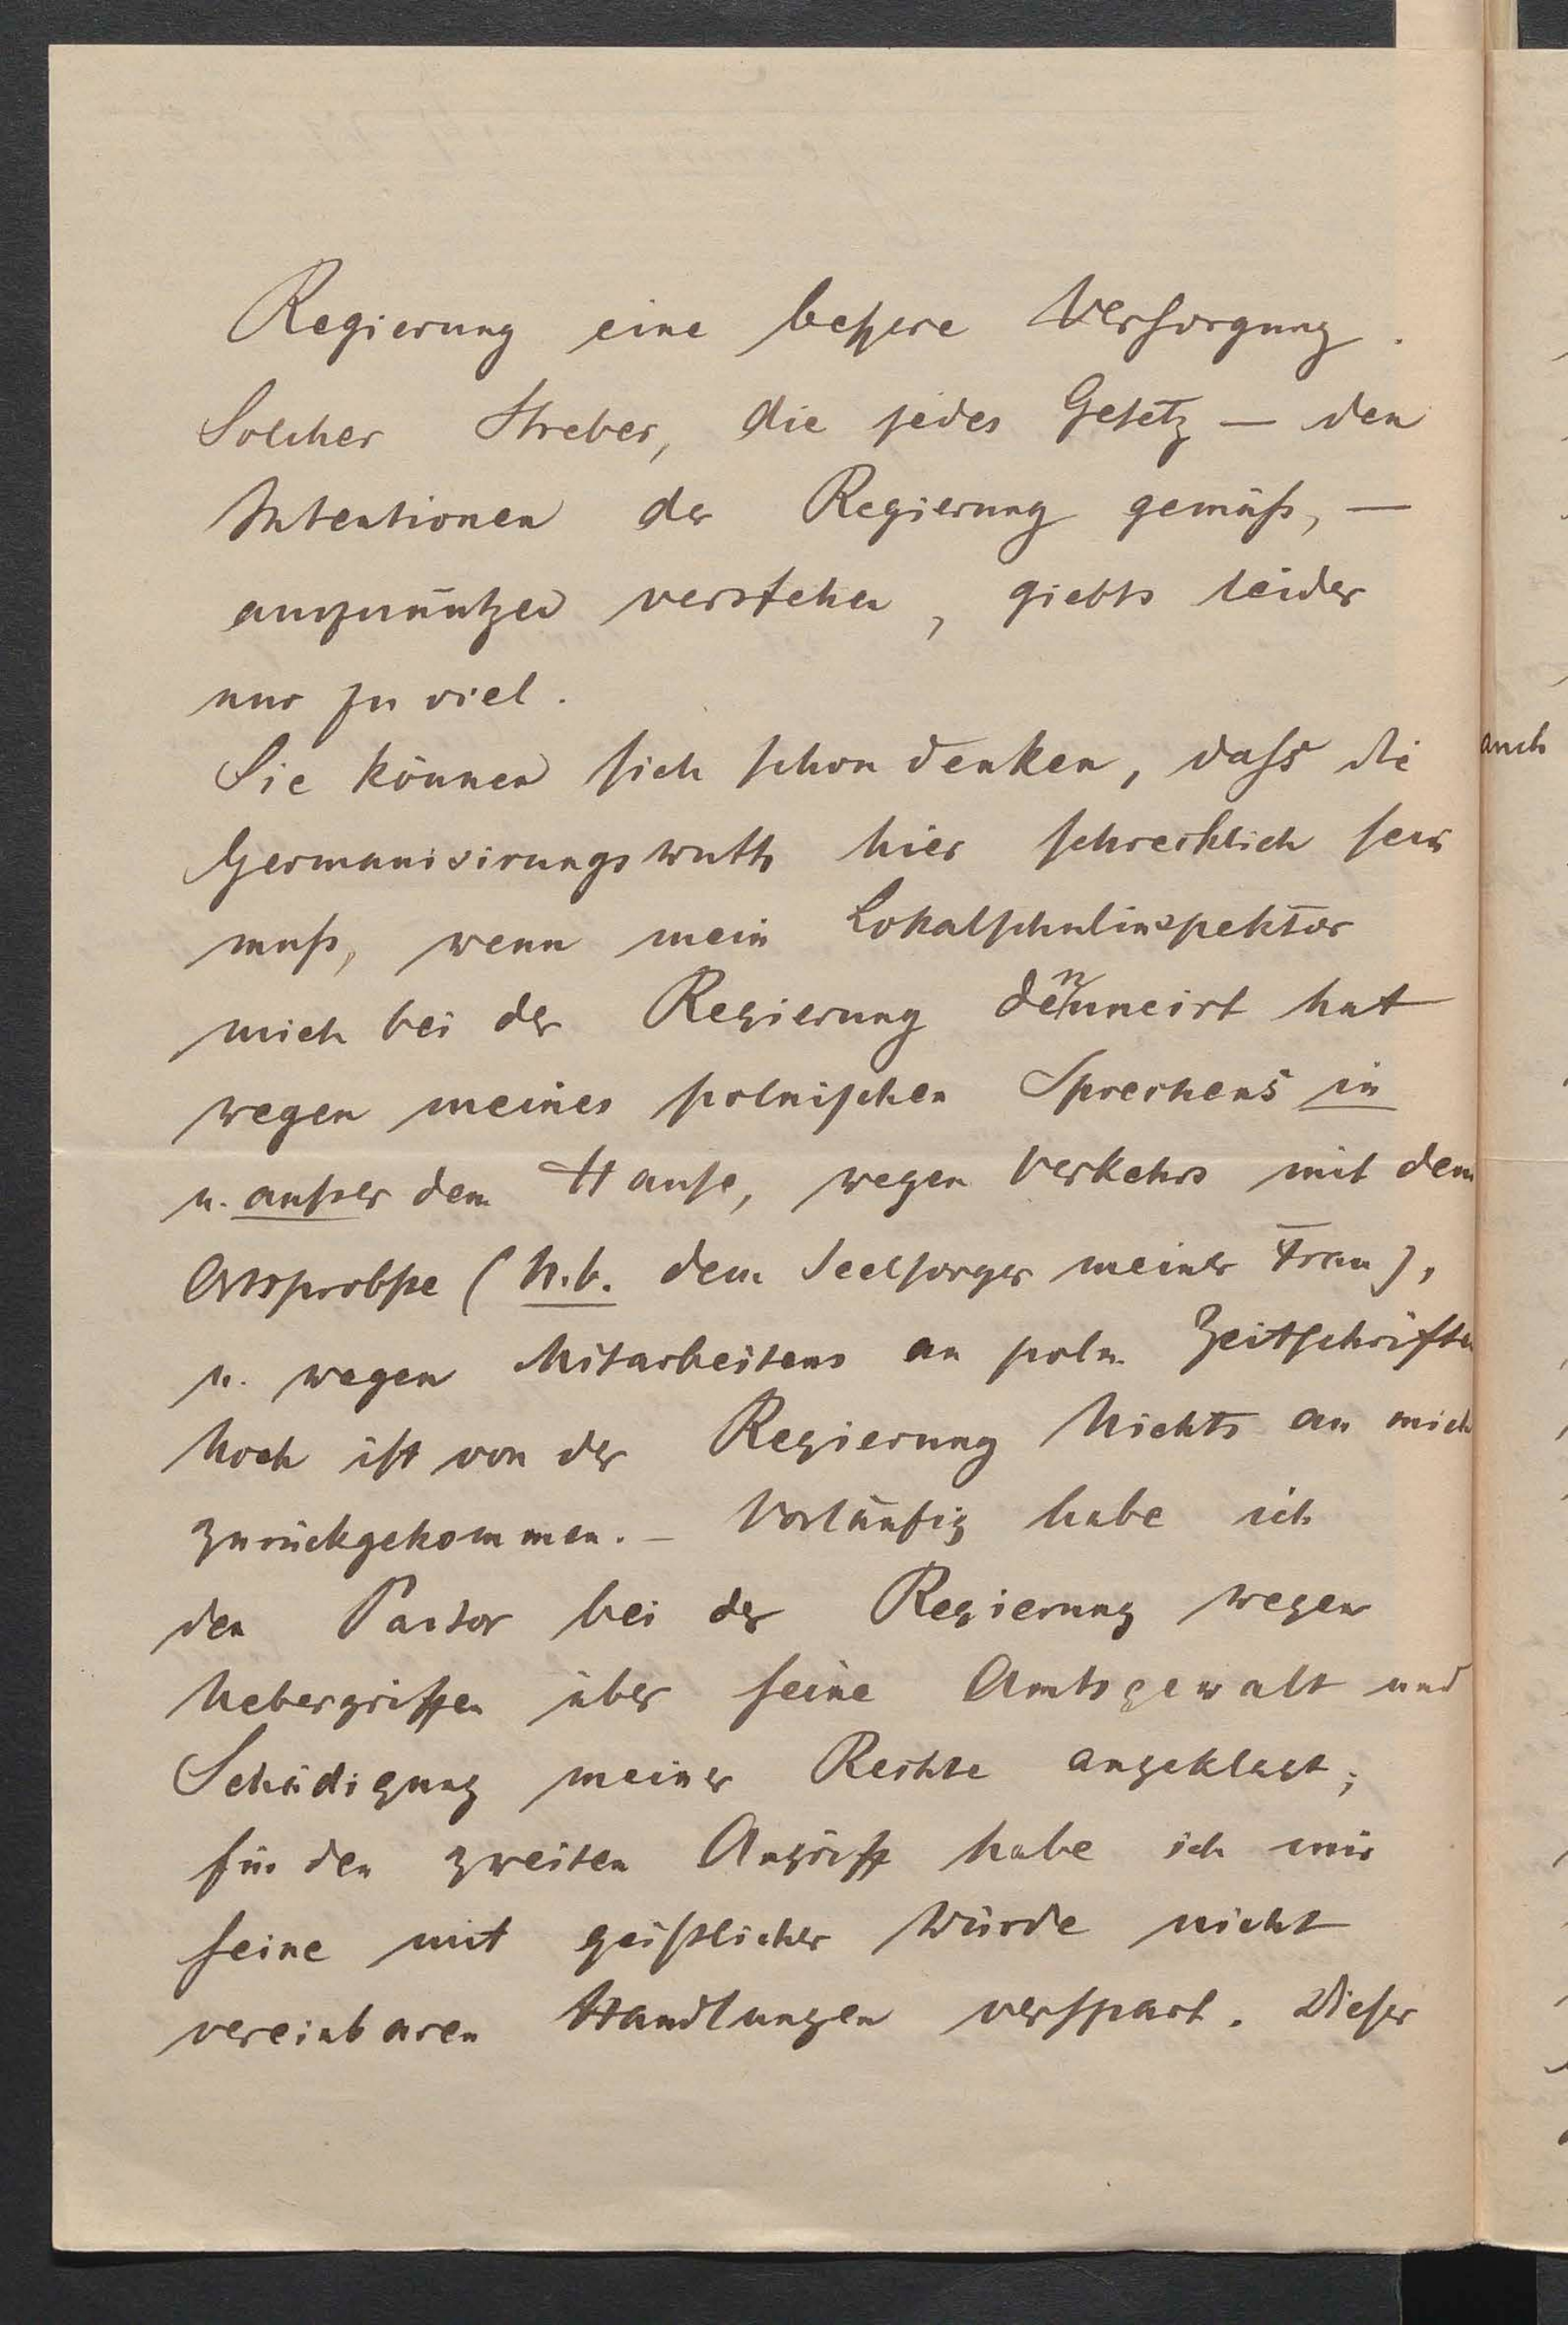 Regierung eine beßere Versorgung.
Solcher Streber, die jedes Gesetz – den
Intentionen der Regierung gemäß, –
auszunützen verstehen, giebts leider
nur zu viel.
Sie können sich schon denken, dass die
Germanisirungswuth hier schrecklich sein
muß, wenn mein Lokalschulinspektor
mich bei der Regierung denuncirt hat
wegen meines polnischen Sprechens in
u. außer dem Hause, wegen Verkehrs mit dem
Ortsprobste (N.b. dem Seelsorger meiner Frau),
u. wegen Mitarbeitens an poln. Zeitschriften
Noch ist von der Regierung Nichts an mich
zurückgekommen. – Vorläufig habe ich
den Pastor bei der Regierung wegen
Uebergriffen über seine Amtsgewalt und
Schädigung meiner Rechte angeklagt;
für den zweiten Angriff habe ich mir
seine mit geistlicher Würde nicht
vereinbaren Handlungen verspart. Dieser
auch